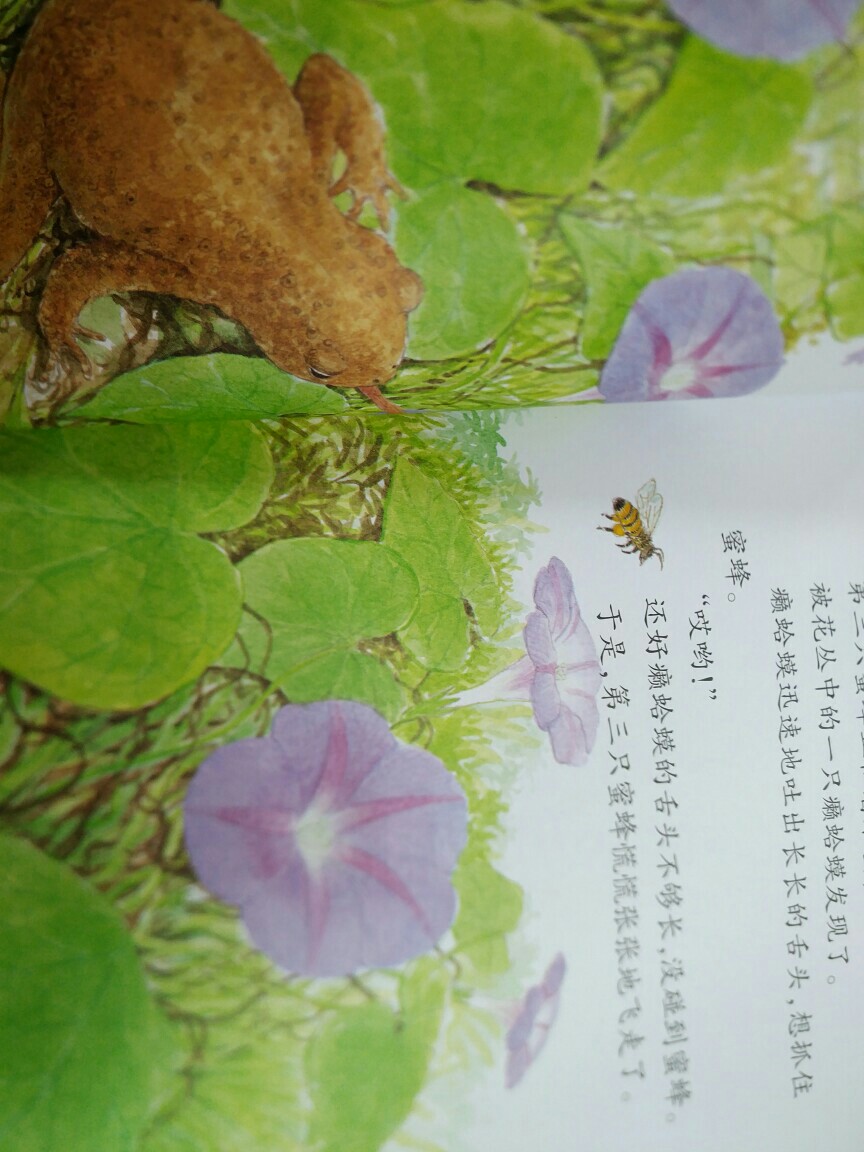 第三只蜜蜂
被花丛中的一只癞蛤蟆发现了。
癞蛤蟆迅速地吐出长长的舌头，想抓住
蜜蜂。
“哎哟！”
还好癞蛤蟆的舌头不够长，没碰到蜜蜂。
于是，第三只蜜蜂慌慌张张地飞走了。